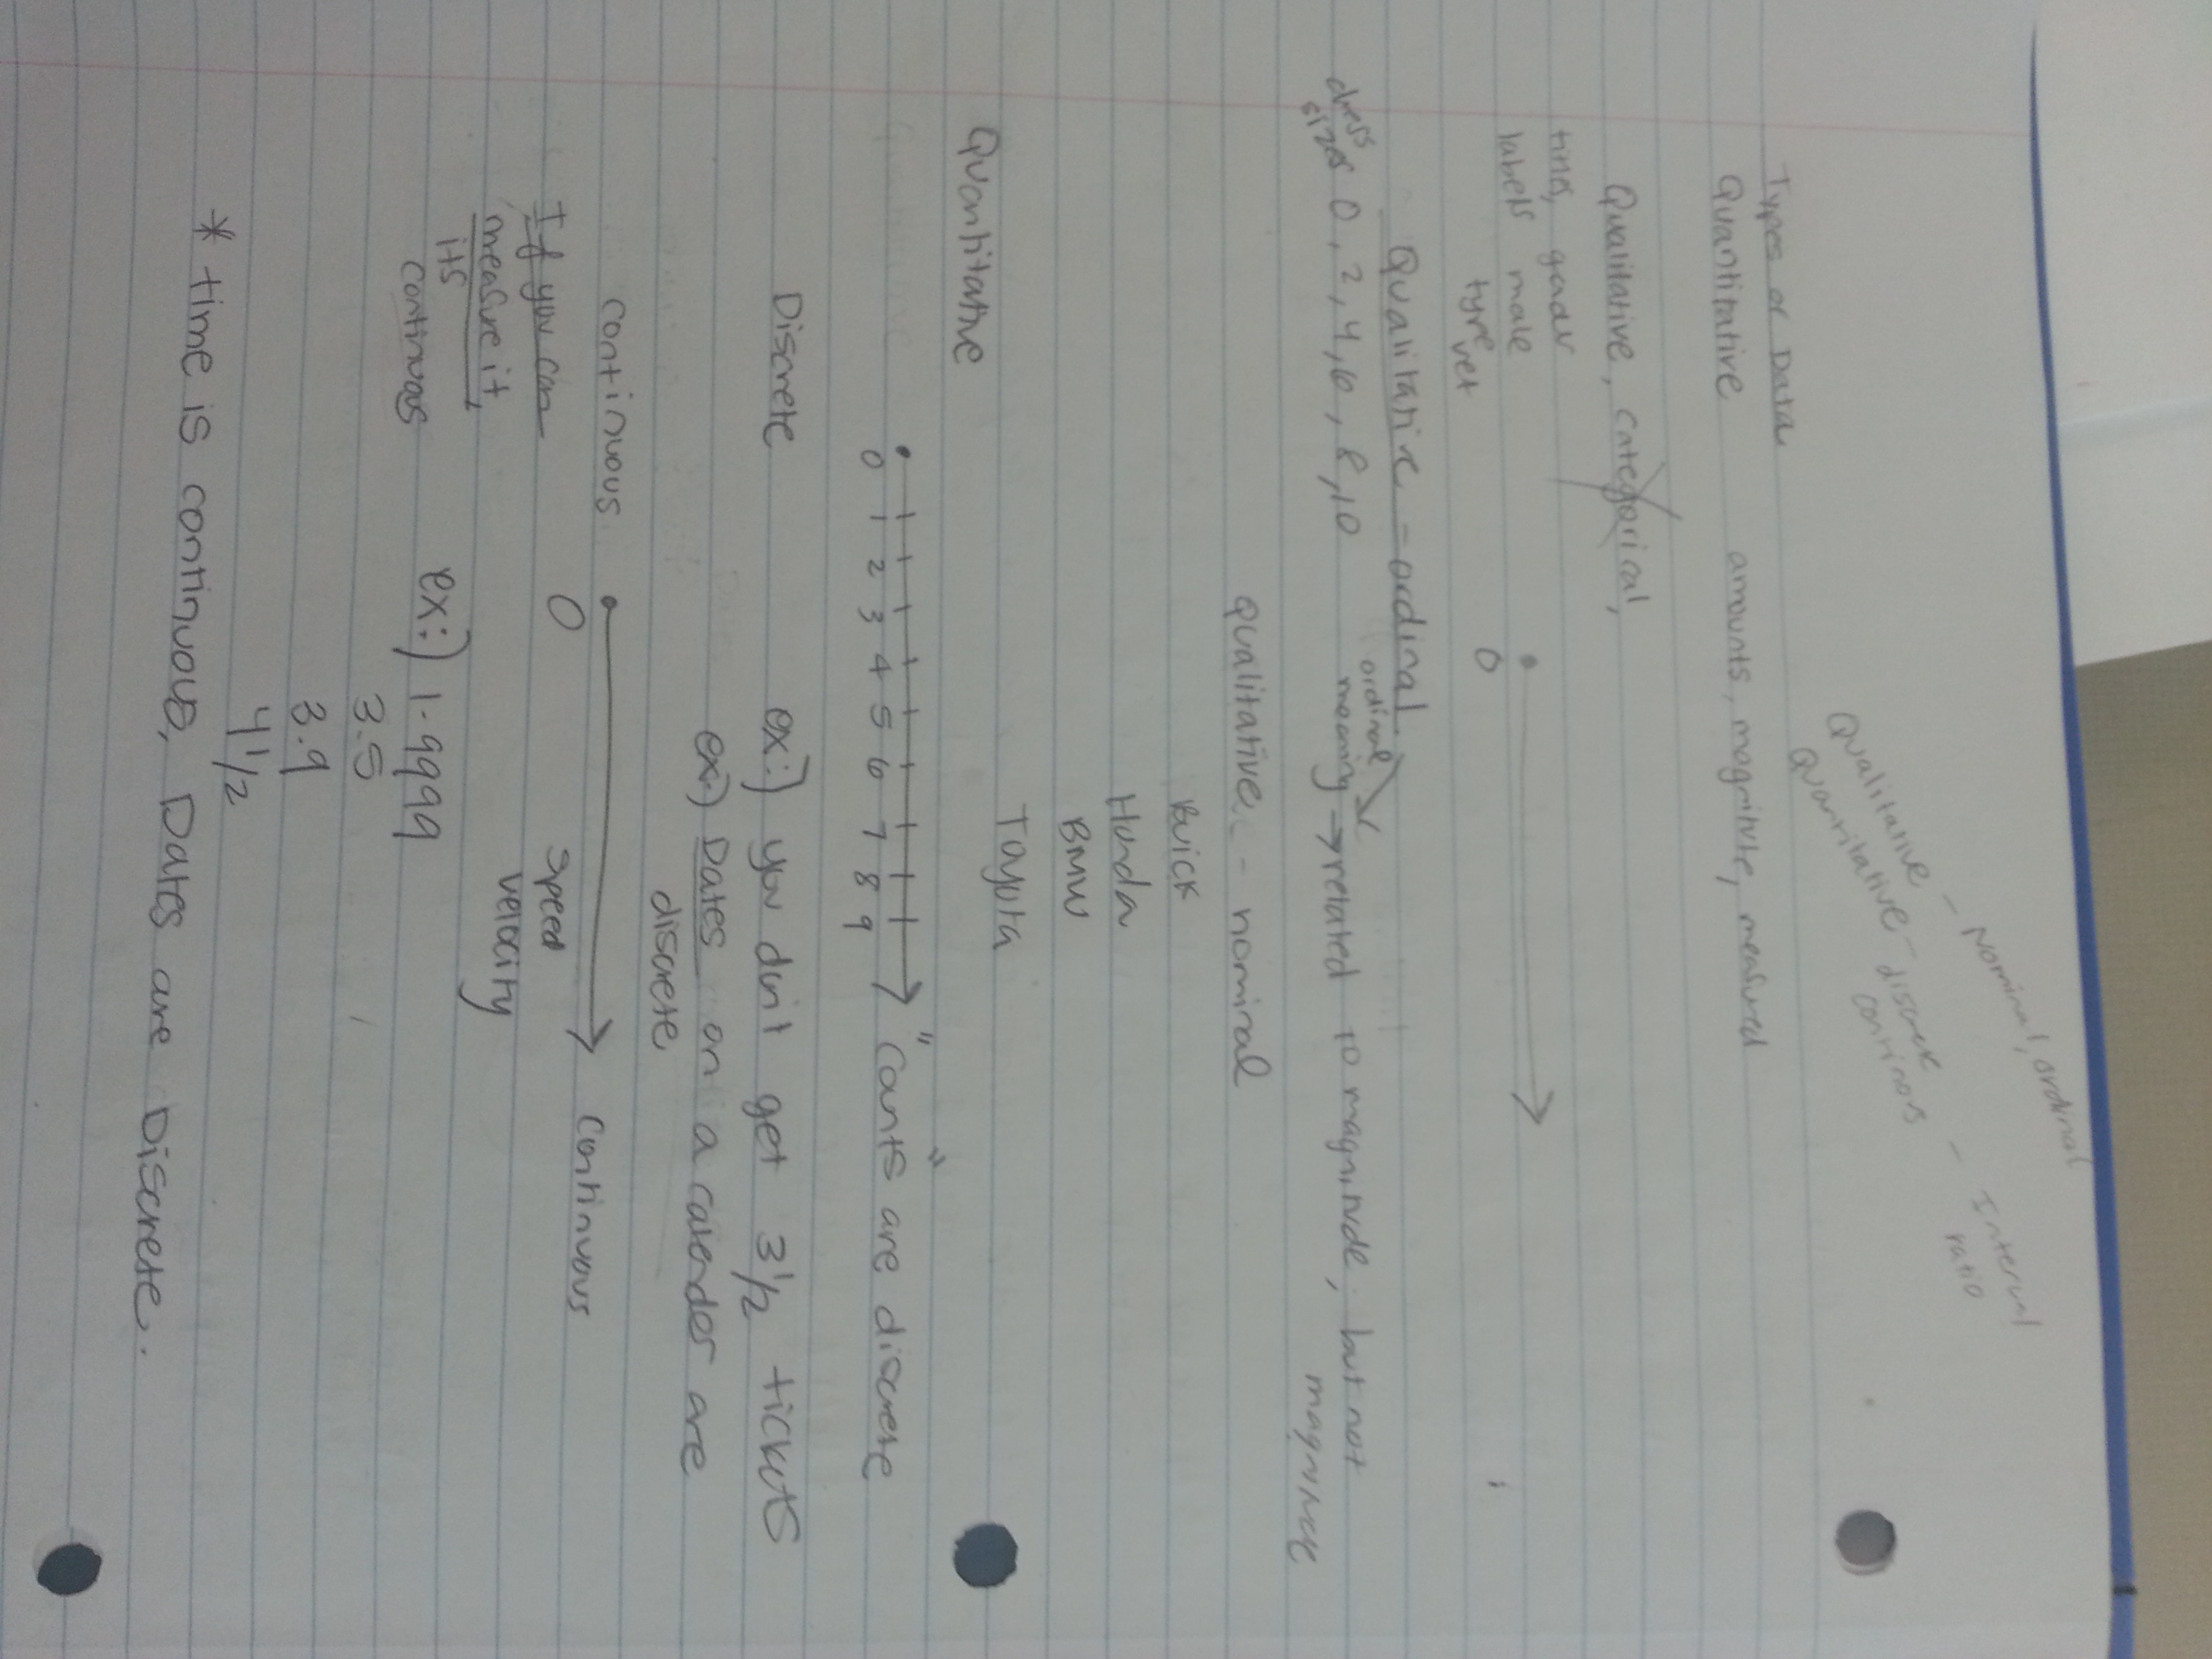 Qualitative - Nominal, ordinal
Quantitative - discrete
continuos - Interval
ratio
Types of Data
Quantitative amounts, magnitude, measured
Qualitative, categorical,
labels male
type
0
Qualitative - ordinal.
ordinal
meaning → related to magnitude, but not
dress
sizes 0, 2, 4, 6, 8, 10
Qualitative - nominal
Buick
Honda
BMW
Toyota
Quantitative
"Counts" are discrete
0 1 2 3 4 5 6 7 8 9
Discrete ex:) you don't get 3 1/2 tickets
ex:) Dates on a calendar are
discrete
Continuous
0 Continuous
If you can speed
measure it, velocity
its
continuous ex:) 1.9999
3.5
3.9
4 1/2
* time is continuous, Dates are Discrete.